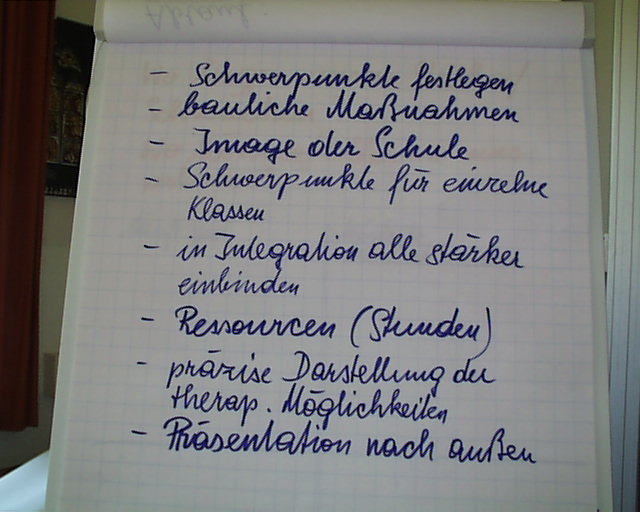 Ablauf
- Schwerpunkte festlegen
- bauliche Maßnahmen
- Image der Schule
- Schwerpunkte für einzelne
Klassen
- in Integration alle stärker
einbinden
- Ressourcen (Stunden)
- präzise Darstellung der
therap. Möglichkeiten
- Präsentation nach außen